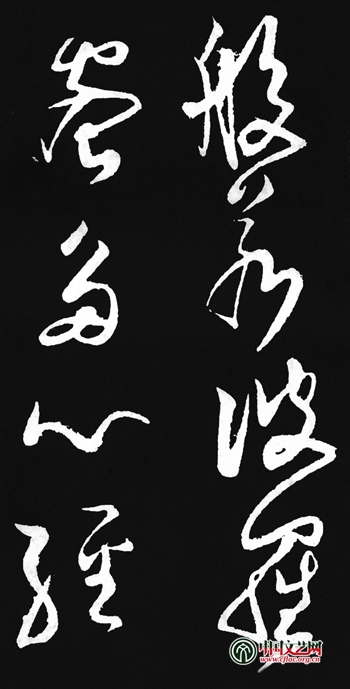 般若波羅
蜜多心經
中国文艺网
www.cflac.org.cn